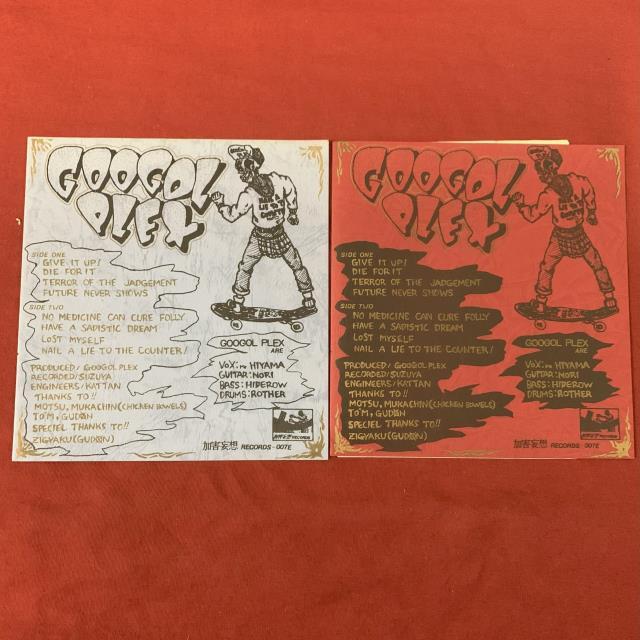 GOOGOL
PLEX
SIDE ONE
GIVE IT UP!
DIE FOR IT
TERROR OF THE JADGEMENT
FUTURE NEVER SHOWS
SIDE TWO
NO MEDICINE CAN CURE FOLLY
HAVE A SADISTIC DREAM
LOST MYSELF
NAIL A LIE TO THE COUNTER!
PRODUCED/GOOGOL PLEX
RECORDED/SUZUYA
ENGINEERS/KATTAN
THANKS TO!!
MOTSU, MUKACHIN(CHICKEN BOWELS)
TOM, GUDON
SPECIEL THANKS TO!!
ZIGYAKU(GUDON)
GOOGOL PLEX
ARE
VOX: HIYAMA
GUITAR:NORI
BASS:HIDEROW
DRUMS:ROTHER
加害妄想 RECORDS-007E
GOOGOL
PLEX
SIDE ONE
GIVE IT UP!
DIE FOR IT
TERROR OF THE JADGEMENT
FUTURE NEVER SHOWS
SIDE TWO
NO MEDICINE CAN CURE FOLLY
HAVE A SADISTIC DREAM
LOST MYSELF
NAIL A LIE TO THE COUNTER!
PRODUCED/GOOGOL PLEX
RECORDED/SUZUYA
ENGINEERS/KATTAN
THANKS TO!!
MOTSU, MUKACHIN(CHICKEN BOWELS)
TOM, GUDON
SPECIEL THANKS TO!!
ZIGYAKU(GUDON)
GOOGOL PLEX
ARE
VOX: HIYAMA
GUITAR:NORI
BASS:HIDEROW
DRUMS:ROTHER
加害妄想 RECORDS-007E